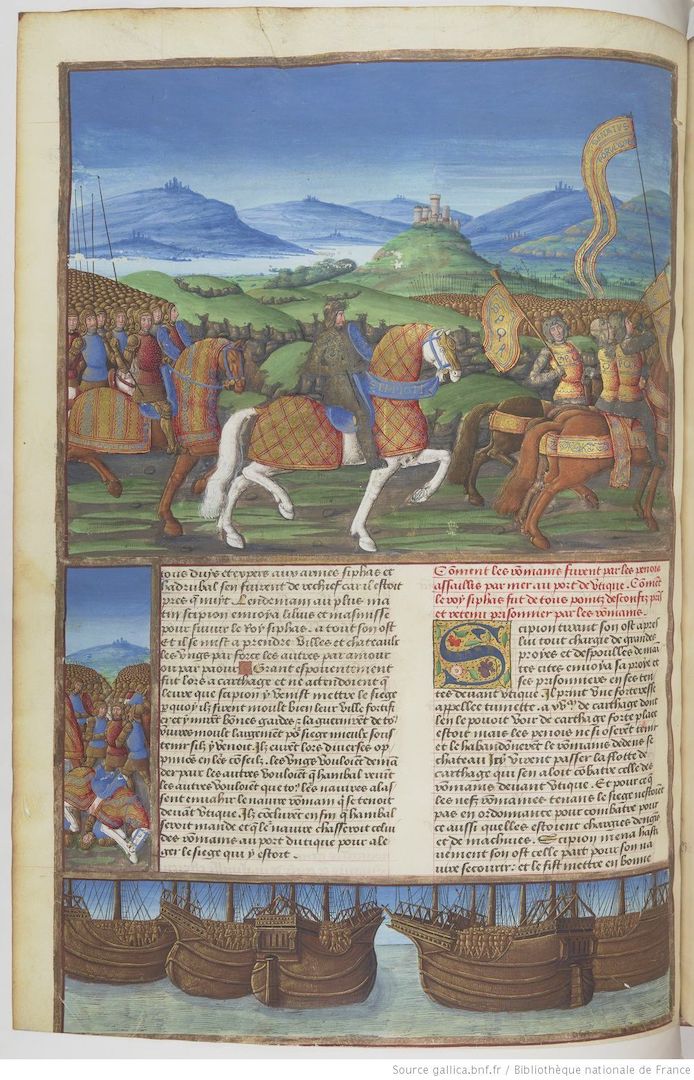 SENATVS
POPVLVSQVE
SPQR
SCIPION
tous duys et expers aux armes siphas et
hadrubal sen fuirent de rechief car il estoit
pres q̃ nuyt. Lendemain au plus ma
tin scipion envoya lilius et masinisse
pour suivir le Roy siphas a tout son ost
Et il se mist a prendre villes et chasteaulx
les ungs par force les autres par amour
ou par paour. Grant espouentement
fut lors a carthage et ne attendoient q̃
leure que scipion y venist mettre le siege
p̃quoy ilz firent moult bien leur ville fortifi
er et y mirent bõnes gardes: et la guernirent de to
vivres moult largement põ siege meult sous
tenir silz y venoit. Ilz eurent lors diverses op
pinions en les cõseilz. les ungs vouloient deman
der paix les autres vouloient q̃ hanibal venist
les autres vouloient que to les navires alas
sent envahir le navire rõmain q̃ se tenoit
devant Utique. Ilz cõclurent en fin q̃ hanibal
seroit mande et q̃ le navire chasseroit celui
des rõmains au port dutique pour ale
ger le siege qui y estoit.
Cõment les rõmains furent par les penois
assaillis par mer au port de utique. Cõmẽt
le roy siphas fut de tous pointz desconfit pris
et retenu prisonnier par les rõmains.
Scipion tirant son ost apres
lui tout charge de grandes
proyes et despouilles de mai
tes citez envoya sa proye et
ses prisonniers en ses ten
tes devant utique. Il print une forteresse
appellee tunette a de carthage dont
len le povoit voir de carthage forte place
estoit mais les penois ne si oserent tenir
et le habandõnerent les rõmains dedens le
chasteau virent passer la flotte de
carthage qui sen aloit cõbatre celle des
rõmains devant Utique. Et pour ce q̃
les nefz rõmaines tenans le siege nestoient
pas en ordonnance pour combatre pour
ce aussi quelles estoient charges dengis
et de machines. Scipion mena hasti
vement son ost celle part pour son na
vire secourir: et le fist mettre en bonne
Source gallica.bnf.fr / Bibliothèque nationale de France